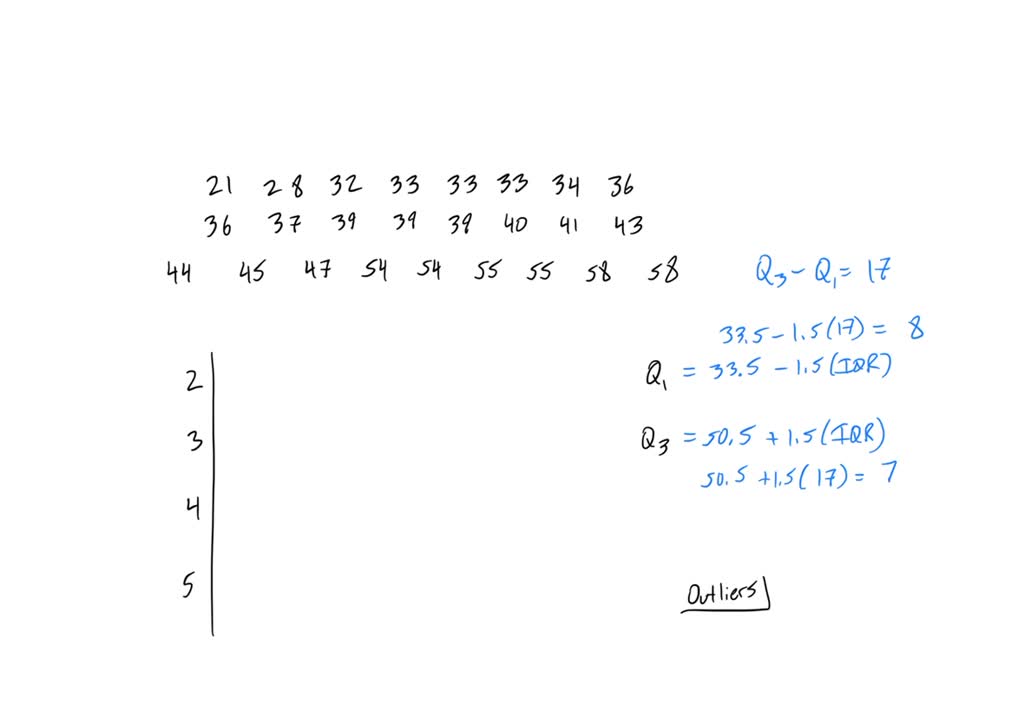 21 28 32 33 33 33 34 36
36 37 39 39 39 40 41 43
44 45 47 54 54 55 55 58 58
Q3 - Q1 = 17
33.5 - 1.5(17) = 8
Q1 = 33.5 - 1.5(IQR)
Q3 = 50.5 + 1.5(IQR)
50.5 + 1.5(17) = 7
2
3
4
5
Outliers